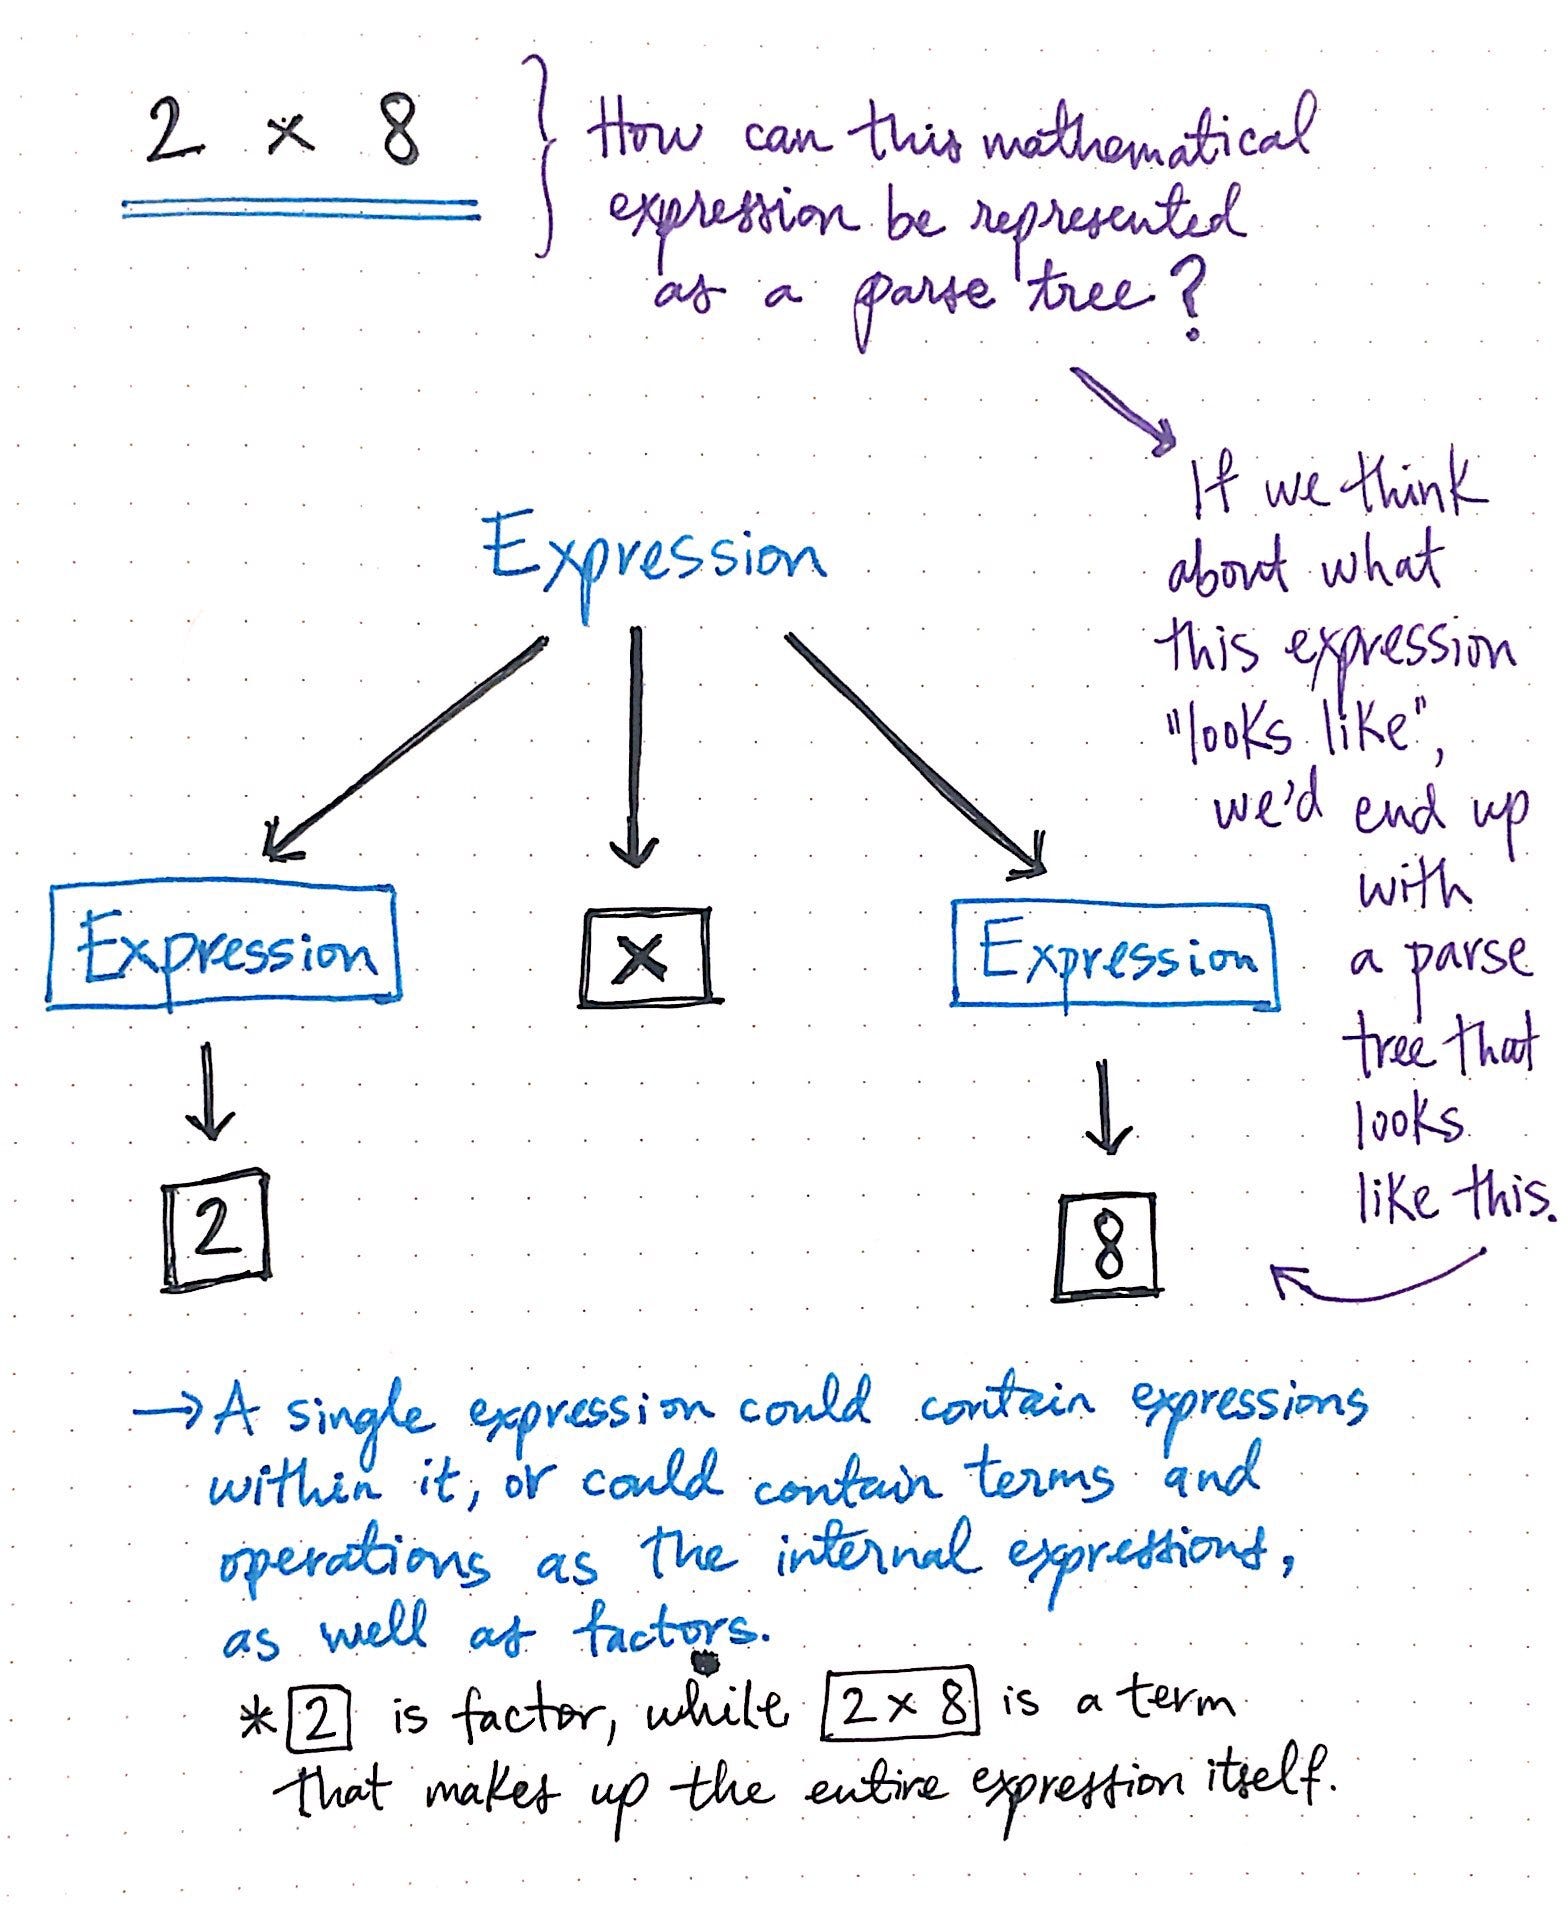 2 × 8
How can this mathematical
expression be represented
as a parse tree?
If we think
about what
this expression
"looks like",
we'd end up
with
a parse
tree that
looks
like this.
Expression
Expression
×
Expression
2
8
→ A single expression could contain expressions
within it, or could contain terms and
operations as the internal expressions,
as well as factors.
* 2 is factor, while 2 × 8 is a term
that makes up the entire expression itself.